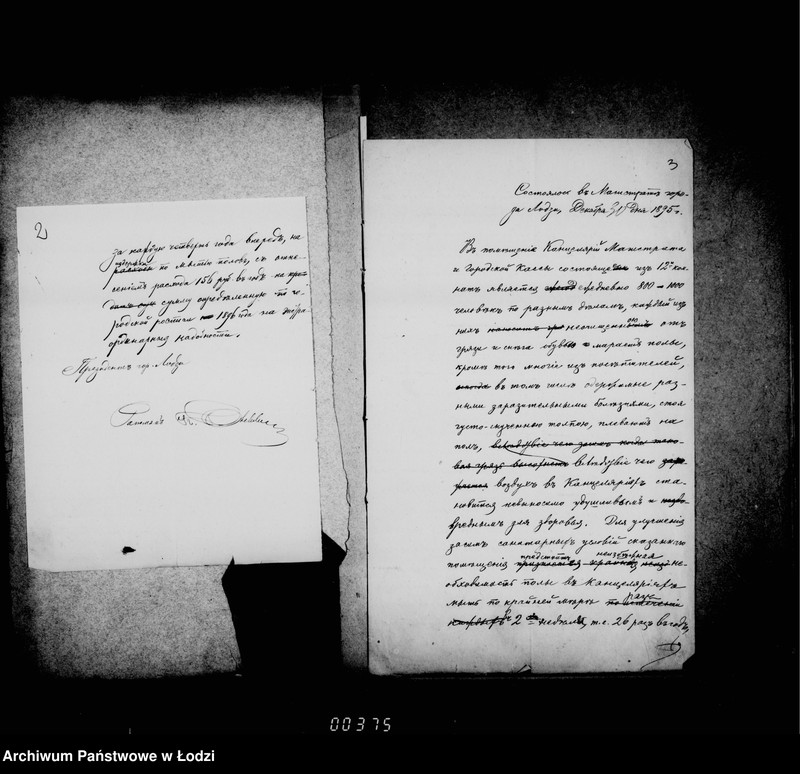 2
за каждую четверть года впередъ, на
по мытію половъ, съ отне-
сеніемъ расхода 156 руб. въ годъ на
сумму опредѣленную по го-
родской росписи 1896 года на экстра-
ординарныя надобности.
Президентъ гор. Лодзи
3
Состоялось въ Магистратѣ горо-
да Лодзи, Декабря 31 дня 1895 г.
Въ помѣщеніе Канцелярій Магистрата
и Городской Кассы состоящее изъ 12 ком-
натъ является ежедневно 800–1000
человѣкъ по разнымъ дѣламъ, каждый изъ
нихъ неочищенною отъ
грязи и снѣга обувью марастъ полы,
кромѣ того многіе изъ посѣтителей,
въ томъ числѣ одержимые раз-
ными заразительными болѣзнями, стоя
густо-скученною толпою, плеваютъ на
полъ, вслѣдствіе чего
воздухъ въ Канцеляріяхъ ста-
новится невыносимо удушливымъ и
вреднымъ для здоровья. Для улучшенія
затѣмъ санитарныхъ условій сказаннаго
помѣщенія предстоитъ неизбѣжная не-
обходимость полы въ Канцеляріяхъ
мыть по крайней мѣрѣ разъ
въ 2 недѣли, т.е. 26 разъ въ годъ,
00375
Archiwum Państwowe w Łodzi